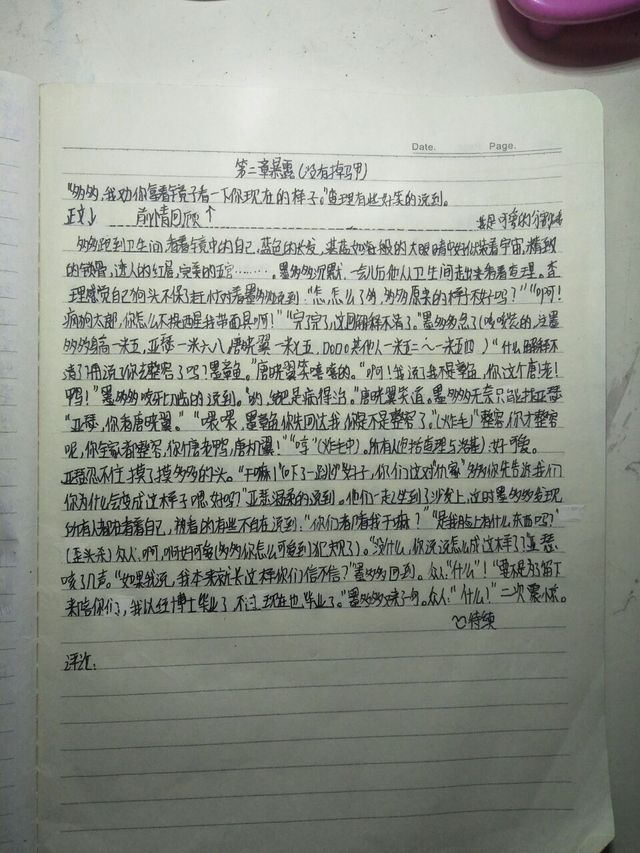 Date. Page.
第二章暴露(没有掉马甲)
"多多,我劝你拿着镜子看一下你现在的样子。"查理有些好笑的说到。
正文↓ 前情回顾↑ 我是可爱的分割线
多多跑到卫生间看着镜中的自己,蓝色的长发,湛蓝如海般的大眼睛好似装着宇宙,精致
的锁骨,迷人的红唇,完美的五官………。墨多多沉默,一会儿后他从卫生间走出来看着查理。查
理感觉自己狗头不保了赶忙对着墨多多说到:"怎,怎么了多,多多原来的样子不好吗?""啊!
疯狗太郎,你怎么不提醒是我带面具啊!""完了完了,这回解释不清了。"墨多多急了(
多多身高一米五,亚瑟一米六八,唐晓翼一米七五,DODO其他人一米五二~一米五四)"什么解释不
清了用说你去整容了吗?墨章鱼。"唐晓翼笑嘻嘻的。"啊!我说我不是章鱼,你这个唐老
鸭!"墨多多咬牙切齿的说到。"的,鸭是病得治。"唐晓翼笑道。墨多多无奈只能找亚瑟
"亚瑟,你看唐晓翼。""喂喂,墨章鱼你先回达我你是不是整容了。"(炸毛)"整容,你才整容
呢,你全家都整容,你个唐老鸭,唐村翼!""哼"(炸毛中)。所有人(包括查理与洛基):好可爱。
亚瑟忍不住摸了摸多多的头。"干嘛!"(吓了一跳)"好了,你们这对仇家""多多你先告诉我们
你为什么会变成这样子嗯,好吗?"亚瑟温柔的说到。他们一起坐到了沙发上,这时墨多多发现
所有人都盯着看自己,被看的有些不自在说到:"你们看着我干嘛?""是我脸上有什么东西吗?"
(歪头杀)众人:啊,啊好可爱(多多你怎么可爱到犯规了)。"没什么,你说说怎么成这样了"亚瑟
咳了几声。"如果我说,我本来就长这样你们信不信?"墨多多回到。众人:"什么"!"要不是为留下
来陪你们,我以经博士毕业了,不过现在也毕业了。"墨多多又来了一句。众人:"什么!"二次震惊。
待续
评论: